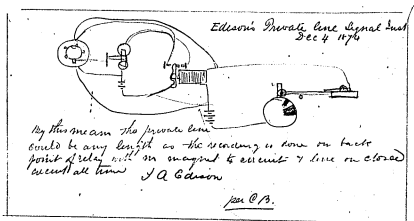 Edison's Private Line Signal Inst
Dec 4 1874
By this means the private line
could be any length as the recording is done on back
point of relay with no magnet to circuit & line on closed
circuit all time
T A Edison
per C B.